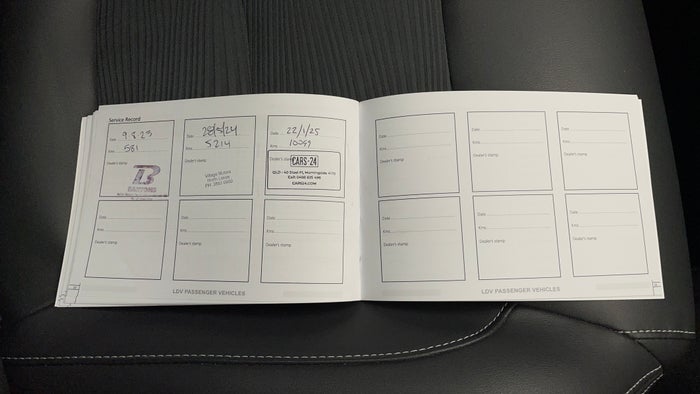 Service Record
Date 9.8.23
Kms 581
Dealer's stamp
B
Date 28/5/24
Kms 5214
Dealer's stamp
Date 22/1/25
Kms 10059
Dealer's stamp
CARS·24
QLD - 40 Steel Pl, Morningside 4170
CARS24.COM
Date
Kms
Dealer's stamp
Date
Kms
Dealer's stamp
Date
Kms
Dealer's stamp
LDV PASSENGER VEHICLES
Date
Kms
Dealer's stamp
Date
Kms
Dealer's stamp
Date
Kms
Dealer's stamp
Date
Kms
Dealer's stamp
Date
Kms
Dealer's stamp
Date
Kms
Dealer's stamp
LDV PASSENGER VEHICLES